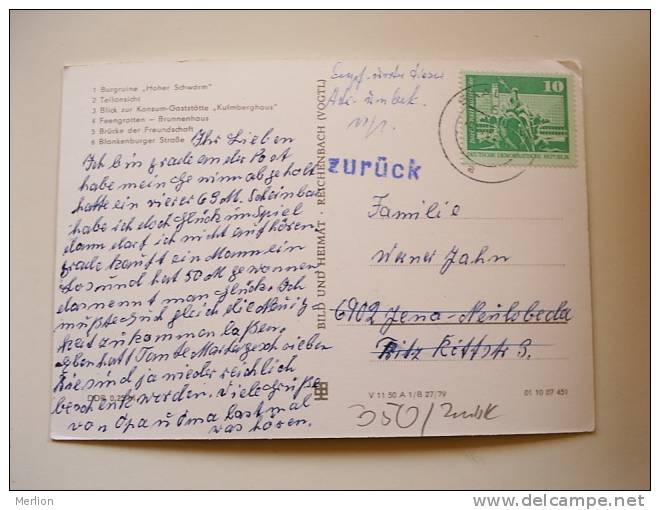 1 Burgruine „Hoher Schwarm"
2 Teilansicht
3 Blick zur Konsum-Gaststätte „Kulmberghaus"
4 Feengrotten – Brunnenhaus
5 Brücke der Freundschaft
6 Blankenburger Straße
Ihr Lieben
Ich bin grade an der Post
habe mein gewinn abgeholt
hatte ein vierer 69 M. Scheinbar
habe ich doch Glück im Spiel
dann darf ich nicht aufhören
grade kauft ein Mann ein
Los und hat 50 M gewonnen
das nennt man Glück. Ich
mußte Euch gleich die Neuig
keit zukommen laßen.
Eben hat Tante Marta geschrieben
Sie sind ja wieder reichlich
beschenkt worden. Viele Grüße
von Opa u Oma Last mal
was hören.
DDR
BILD UND HEIMAT · REICHENBACH (VOGTL)
Empf. unter dieser
Adr. unbek.
zurück
10
DEUTSCHE DEMOKRATISCHE REPUBLIK
Familie
Werner Jahn
6902 Jena-Neulobeda
Fritz Rittstr 3.
V 11 50 A 1/B 27/79
01 10 07 451
350/
Merlion
www.delcampe.net